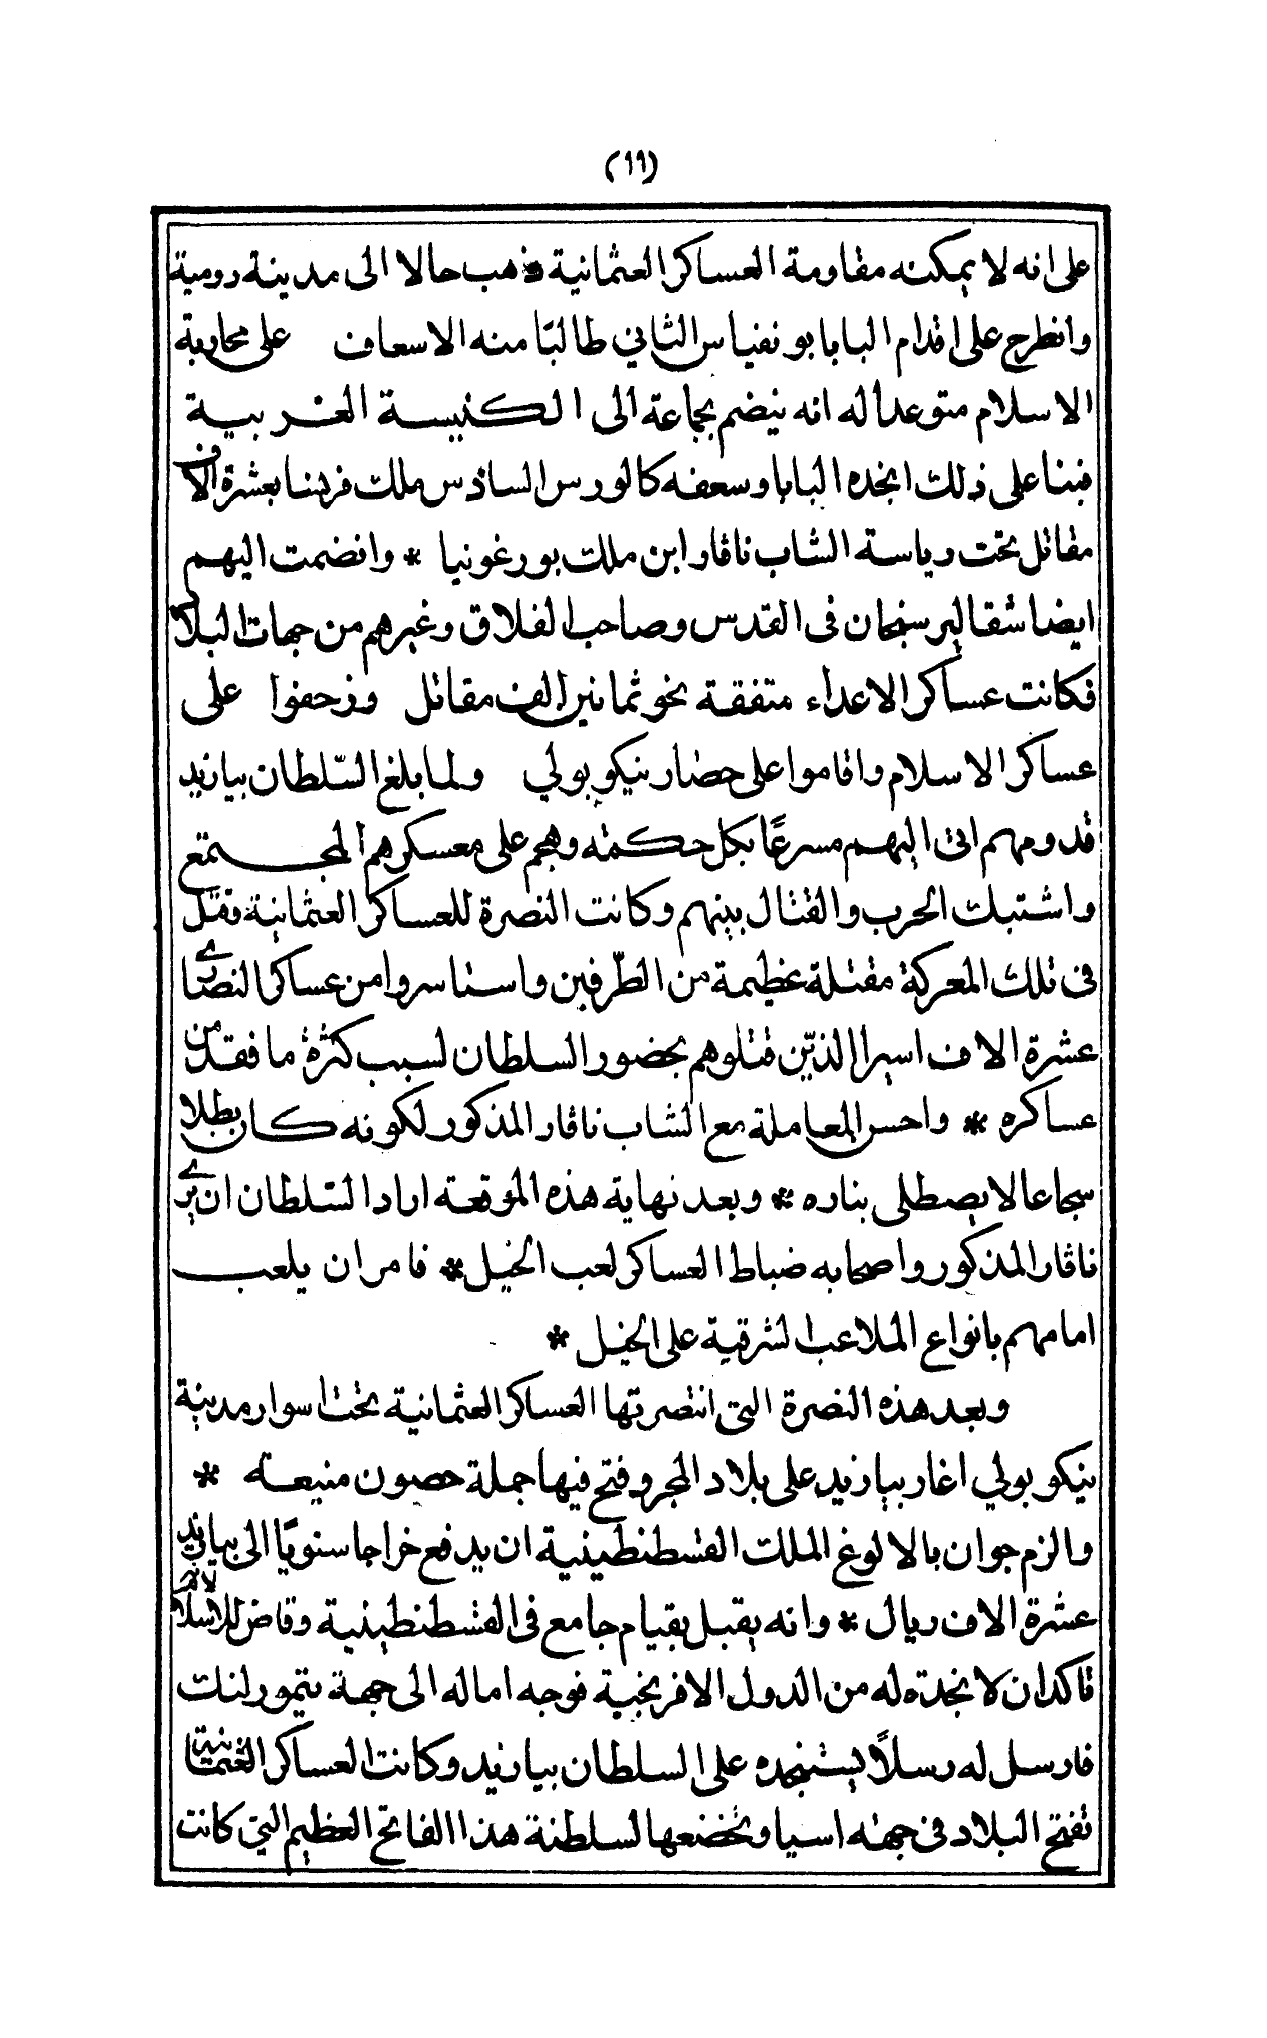 (١١)
على انه لا يمكنه مقاومة العساكر العثمانية فذهب حالا الى مدينة رومية
وانطرح على اقدام البابا بونفياس الثاني طالبًا منه الاسعاف على محاربة
الاسلام متوعدا له انه ينضم بجماعة الى الكنيسة الغربية
فبنا على ذلك انجده البابا وسعفه كالورس السادس ملك فرنسا بعشرة الاف
مقاتل تحت رياسة الشاب ناڤار ابن ملك بورغونيا * وانضمت اليهم
ايضا شقالير سنجان فى القدس وصاحب الفلاق وغيرهم من جهات البلاد
فكانت عساكر الاعداء متفقة نحو ثمانين الف مقاتل وزحفوا على
عساكر الاسلام واقاموا على حصار نيكوبولي ولما بلغ السّلطان بيازيد
قدومهم اتى اليهم مسرعًا بكل حكمته وهجم على معسكرهم المجتمع
واشتبك الحرب والقتال بينهم وكانت النصرة للعساكر العثمانية فقتل
فى تلك المعركة مقتلة عظيمة من الطّرفين واستاسروا من عساكر النصارى
عشرة الاف اسيرا الذين قتلوهم بحضور السلطان لسبب كثرة ما فقد من
عساكره * واحسن المعاملة مع الشاب ناڤار المذكور لكونه كان بطلا
سجاعا لا يصطلى بناره * وبعد نهاية هذه الموقعة اراد السّلطان ان يرى
ناڤار المذكور واصحابه ضباط العساكر لعب الخيل * فامر ان يلعب
امامهم بانواع الملاعب الشرقية على الخيل *
وبعد هذه النصرة التى انتصرتها العساكر العثمانية تحت اسوار مدينة
نيكوبولي اغار بيازيد على بلاد المجر وفتح فيها جملة حصون منيعة *
والزم جوان بالالوغ الملك القسطنطينية ان يدفع خراجا سنويًا الى بيازيد
عشرة الاف ريال * وانه يقبل بقيام جامع فى القسطنطينية وقاض للاسلام لانه
تاكد ان لا نجدة له من الدول الافرنجية فوجه اماله الى جهة تيمورلنك
فارسل له رسلاً يستنجده على السلطان بيازيد وكانت العساكر العثمانية
تفتح البلاد فى جهة اسيا وتخضعها لسلطنة هذا الفاتح العظيم التى كانت